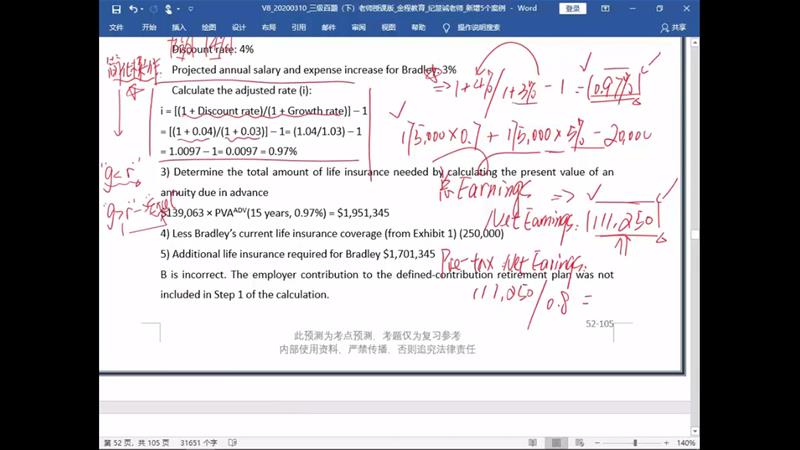 V8_20200310_三级百题（下）老师授课版_金程教育_纪慧诚老师_新增5个案例 - Word
登录
文件 开始 插入 设计 布局 引用 邮件 审阅 视图 帮助 操作说明搜索
Discount rate: 4%
Projected annual salary and expense increase for Bradley: 3%
Calculate the adjusted rate (i):
i = [(1 + Discount rate)/(1 + Growth rate)] – 1
= [(1 + 0.04)/(1 + 0.03)] – 1= (1.04/1.03) – 1
= 1.0097 – 1= 0.0097 = 0.97%
⇒ 1+4%/1+3% - 1 = 0.97%
175,000×0.7 + 175,000×5% - 20,000
3) Determine the total amount of life insurance needed by calculating the present value of an
annuity due in advance
"g<r"
Earnings ⇒
Net Earnings: 111,250
$139,063 × PVA ADV(15 years, 0.97%) = $1,951,345
4) Less Bradley's current life insurance coverage (from Exhibit 1) (250,000)
5) Additional life insurance required for Bradley $1,701,345
Pre-tax Net Earings:
111,250/0.8 =
B is incorrect. The employer contribution to the defined-contribution retirement plan was not
included in Step 1 of the calculation.
52-105
此预测为考点预测、考题仅为复习参考
内部使用资料、严禁传播、否则追究法律责任
第 52 页，共 105 页 31651 个字
140%